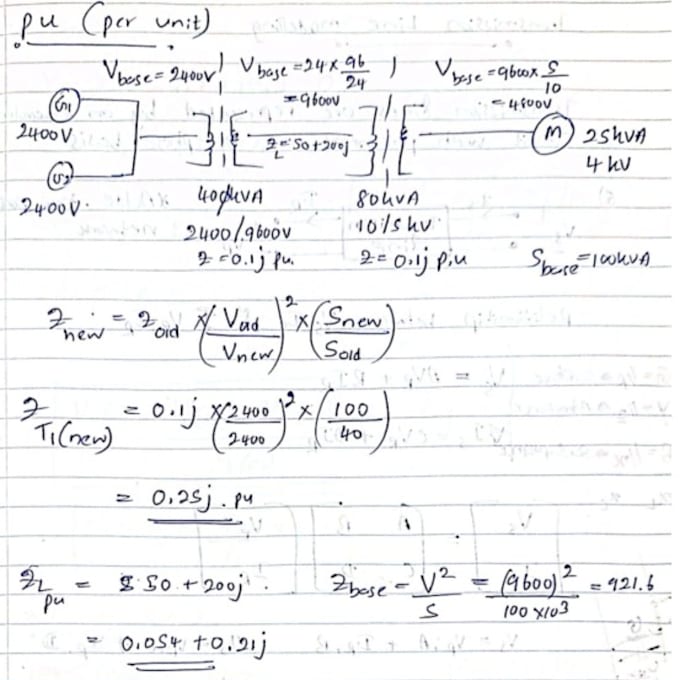 pu (per unit)
Vbase = 2400V | Vbase = 24 × 96/24 ) Vbase = 9600 × 5/10
= 9600V = 4800V
G1
2400V
ZL = 50 + 200j
M 25kVA
4 kV
G2
2400V.
40kVA 80kVA
2400/9600V 10/5 kV
Z = 0.1j pu. Z = 0.1j p.u Sbase = 100kVA
Znew = Zold × (Vold/Vnew)² × (Snew/Sold)
Z T1(new) = 0.1j × (2400/2400)² × (100/40)
= 0.25j. pu
ZL pu = 50 + 200j. Zbase = V²/S = (9600)²/100 ×10³ = 921.6
= 0.054 + 0.21j